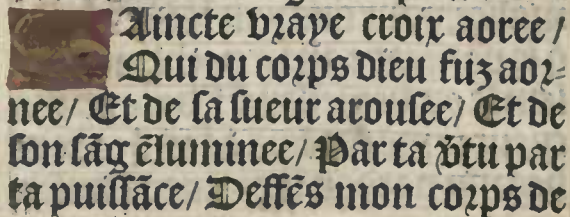 SAincte vraye croix aoree /
Qui du corps dieu fuz aor⸗
nee / Et de sa sueur arousee / Et de
son sãg ẽluminee / Par ta v̾tu par
ta puissãce / Deffẽs mon corps de